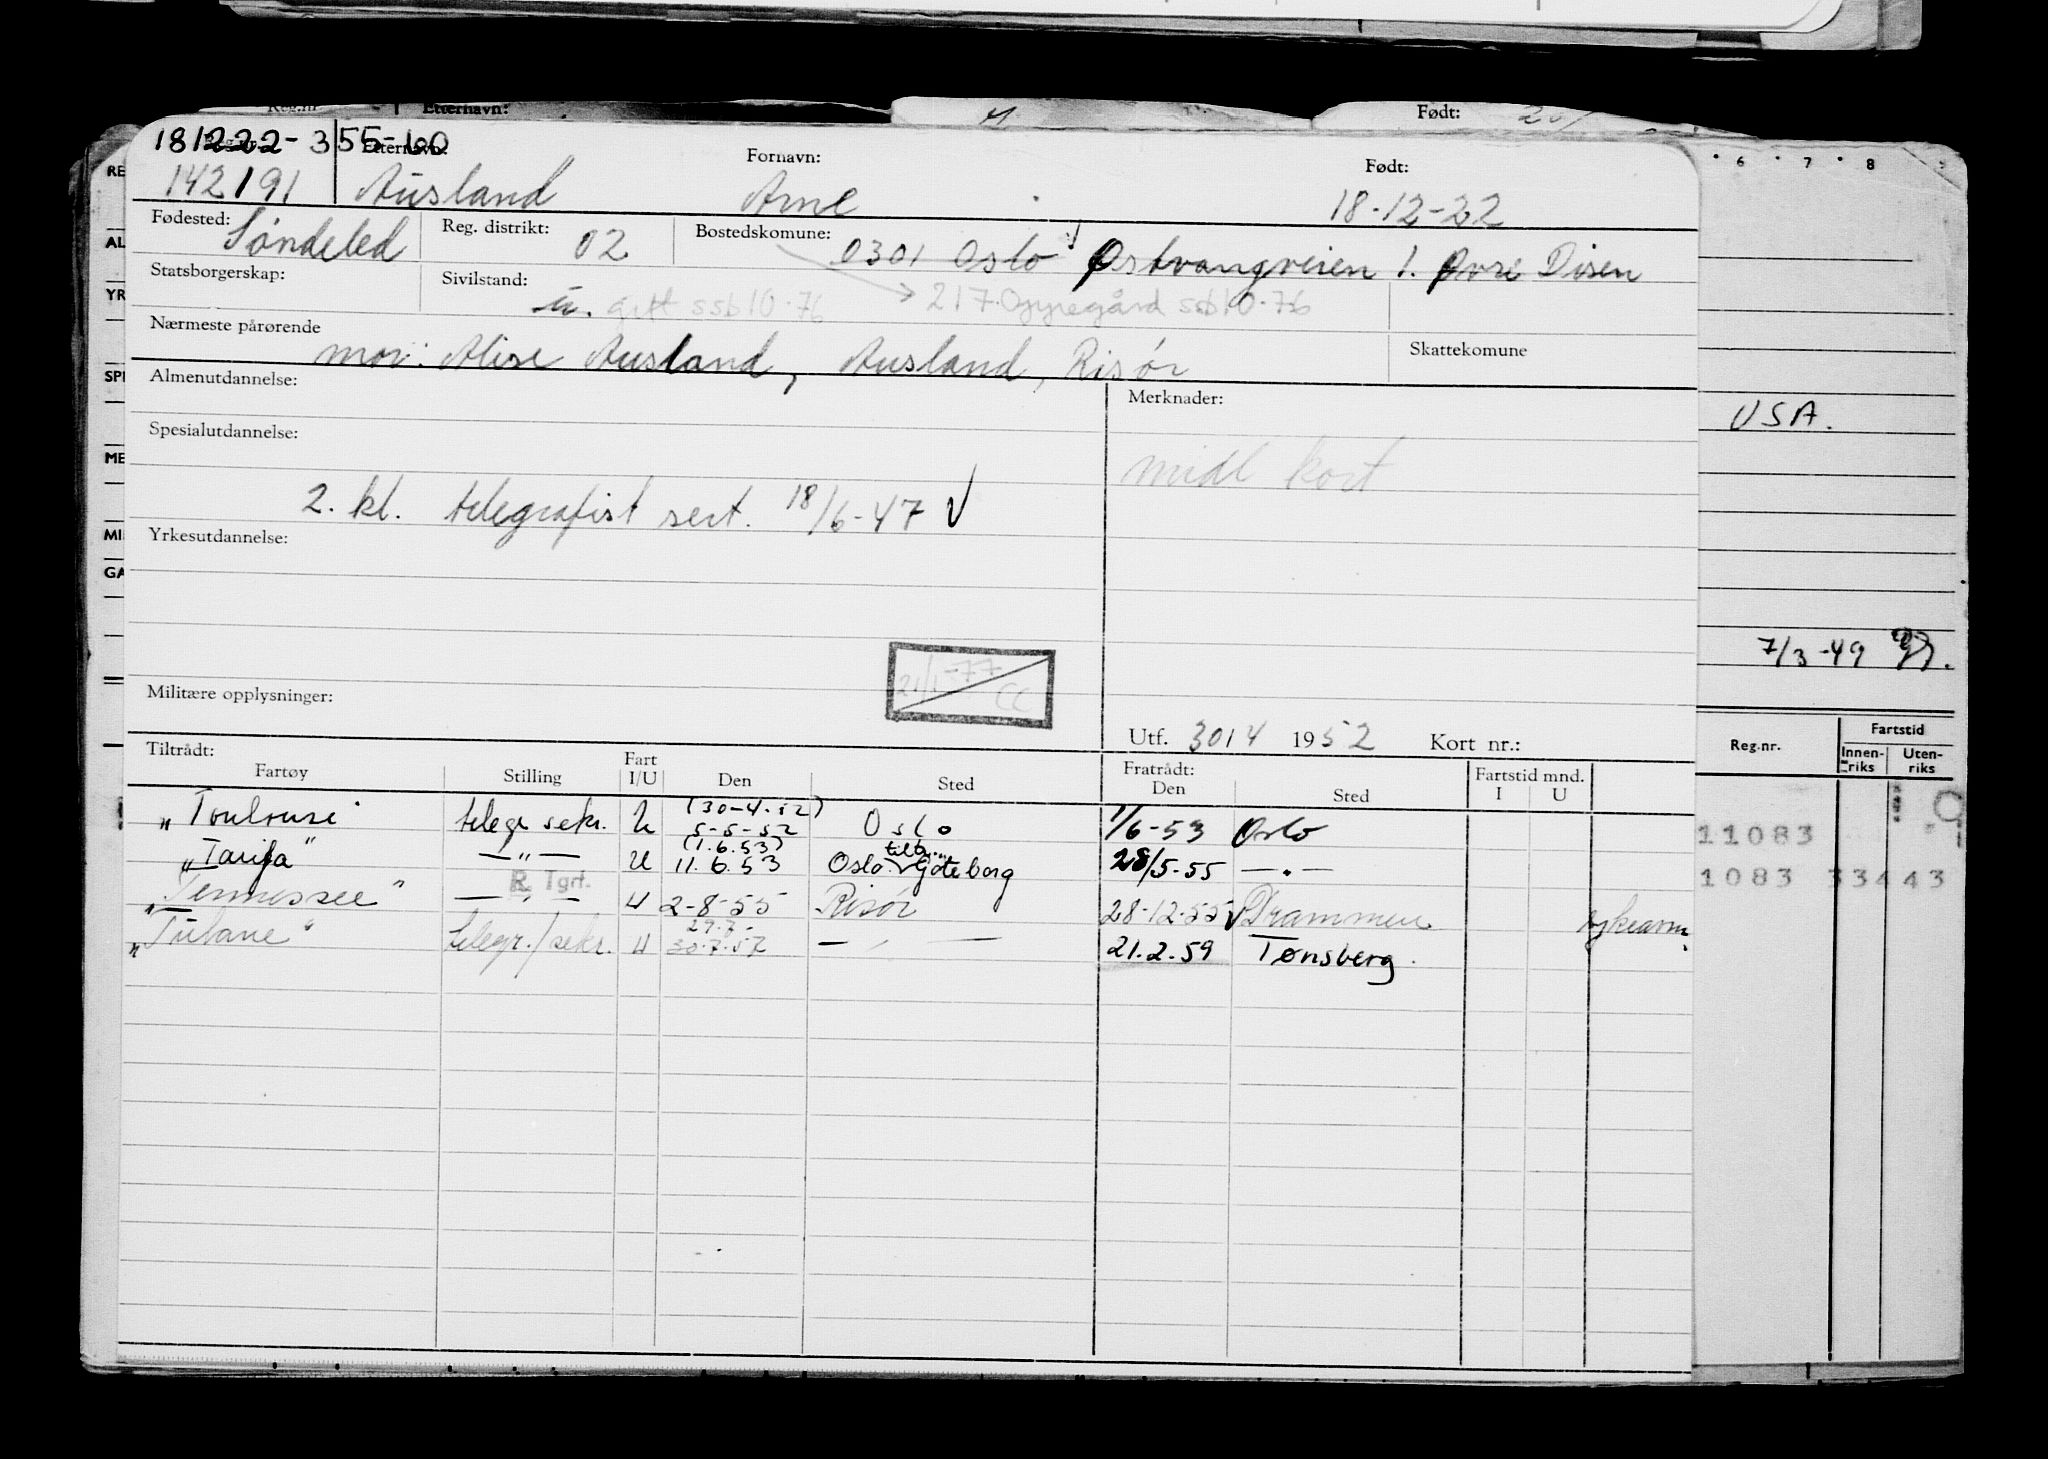 Etternavn: Født:
181222-355-60
Etternavn: Fornavn: Født:
142191 Ausland Arne 18-12-22
Fødested: Søndeled Reg. distrikt: 02 Bostedskomune: 0301 Oslo Østvangveien 1. Øvre Disen
Statsborgerskap: Sivilstand: u. gift ssb 10.76 217 Oppegård ssb 10.76
Nærmeste pårørende
mor: Alise Ausland, Ausland, Risør Skattekomune
Almenutdannelse: Merknader:
midl kort
Spesialutdannelse:
2. kl. telegrafist sert. 18/6-47 V
Yrkesutdannelse:
21/1-77 CC
Militære opplysninger:
Utf. 30/4 1952 Kort nr.:
Tiltrådt: Fratrådt:
Fartøy Stilling Fart I/U Den Sted Den Sted Fartstid mnd. I U
"Toulouse" telegr sekr. U (30-4-52) 5-5-52 Oslo 1/6-53 Oslo
"Tarifa" —"— U (1.6.53) 11.6.53 Oslo Göteborg 28/5-55 —"—
"Tennessee" —"— R. Tgrf. U 2-8-55 Risør 28-12-55 Drammen
"Tulane" telegr./sekr. U 29.7. 30.7.57 — " — 21.2.59 Tønsberg.
6 7 8
RE
AL
YR
SPE
ME
MI
GA
USA.
7/3-49
Reg.nr. Fartstid
Innenriks Utenriks
11083
1083 33443